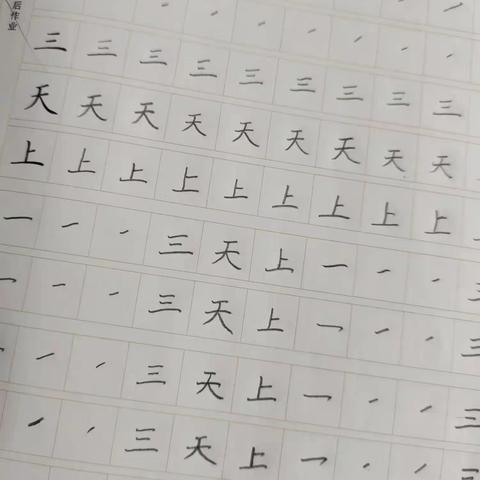 后作业
三三三三三三三三三
天天天天天天天天天
上上上上上上上上上
一一一三天上一一一三
一一一三天上一一一三
一一一三天上一一一三
一一三天上一一一三